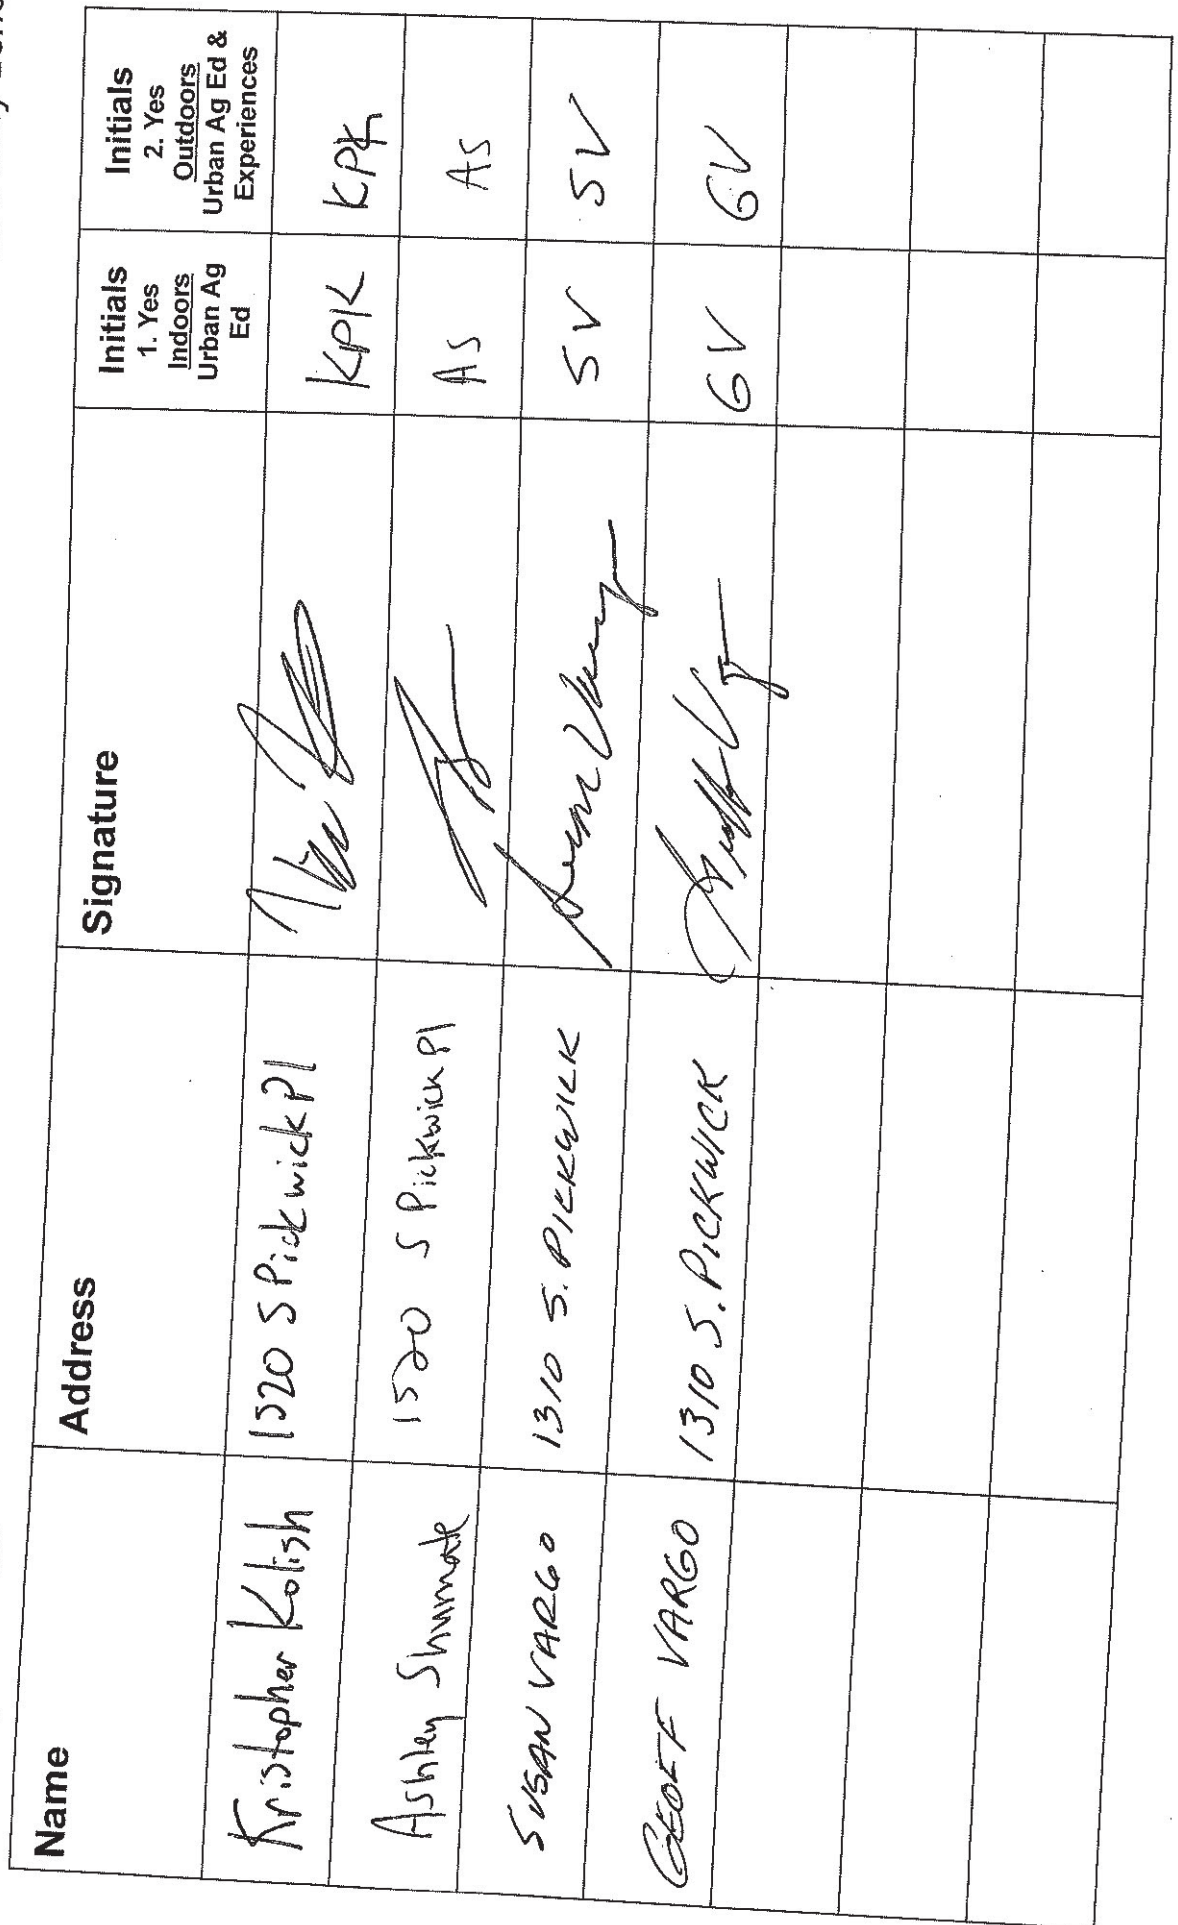 Name Address Signature Initials 1. Yes Indoors Urban Ag Ed Initials 2. Yes Outdoors Urban Ag Ed & Experiences
Kristopher Kolish 1520 S Pickwick Pl KPK KPK
Ashley Shumate 1520 S Pickwick Pl AS AS
SUSAN VARGO 1310 S. PICKWICK Susan Vargo SV SV
GEOFF VARGO 1310 S. PICKWICK Geoff Vargo GV GV